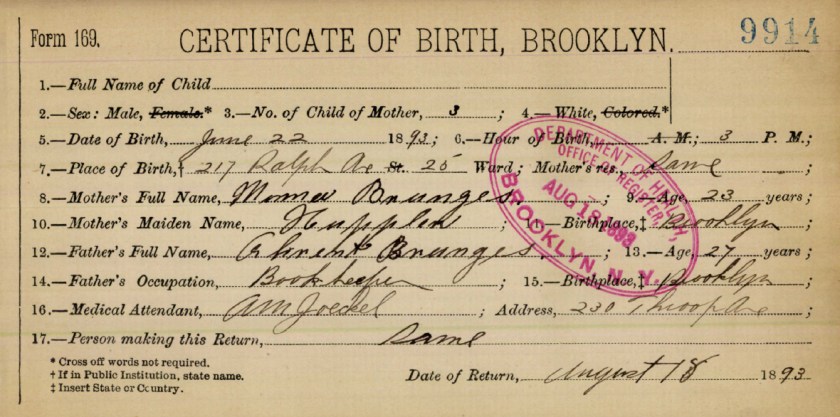 Form 169. CERTIFICATE OF BIRTH, BROOKLYN. 9914
1.—Full Name of Child
2.—Sex: Male, Female.* 3.—No. of Child of Mother, 3 ; 4.—White, Colored.*
5.—Date of Birth, June 22 1893; 6.—Hour of Birth, A. M.; 3 P. M.;
7.—Place of Birth,† 217 Ralph Av St. 25 Ward; Mother's res., Same ;
8.—Mother's Full Name, Brunges. ; 9.—Age, 23 years;
10.—Mother's Maiden Name, ; 11.—Birthplace,‡ Brooklyn ;
12.—Father's Full Name, Ahrent Brunges. ; 13.—Age, 27 years;
14.—Father's Occupation, Bookkeeper ; 15.—Birthplace,‡ Brooklyn ;
16.—Medical Attendant, AM Joeckel ; Address, 230 Throop Av ;
17.—Person making this Return, Same ;
* Cross off words not required.
† If in Public Institution, state name.
‡ Insert State or Country.
Date of Return, August 18 1893
DEPARTMENT OF HEALTH,
OFFICE OF REGISTER,
AUG 18 1893
BROOKLYN, N. Y.